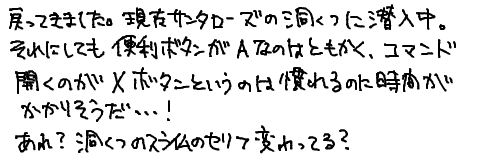 戻ってきました。現在サンタローズの洞くつに潜入中。
それにしても便利ボタンがAなのはともかく、コマンド
開くのがXボタンというのは慣れるのに時間が
かかりそうだ…!
あれ?洞くつのスライムのセリフ変わってる?